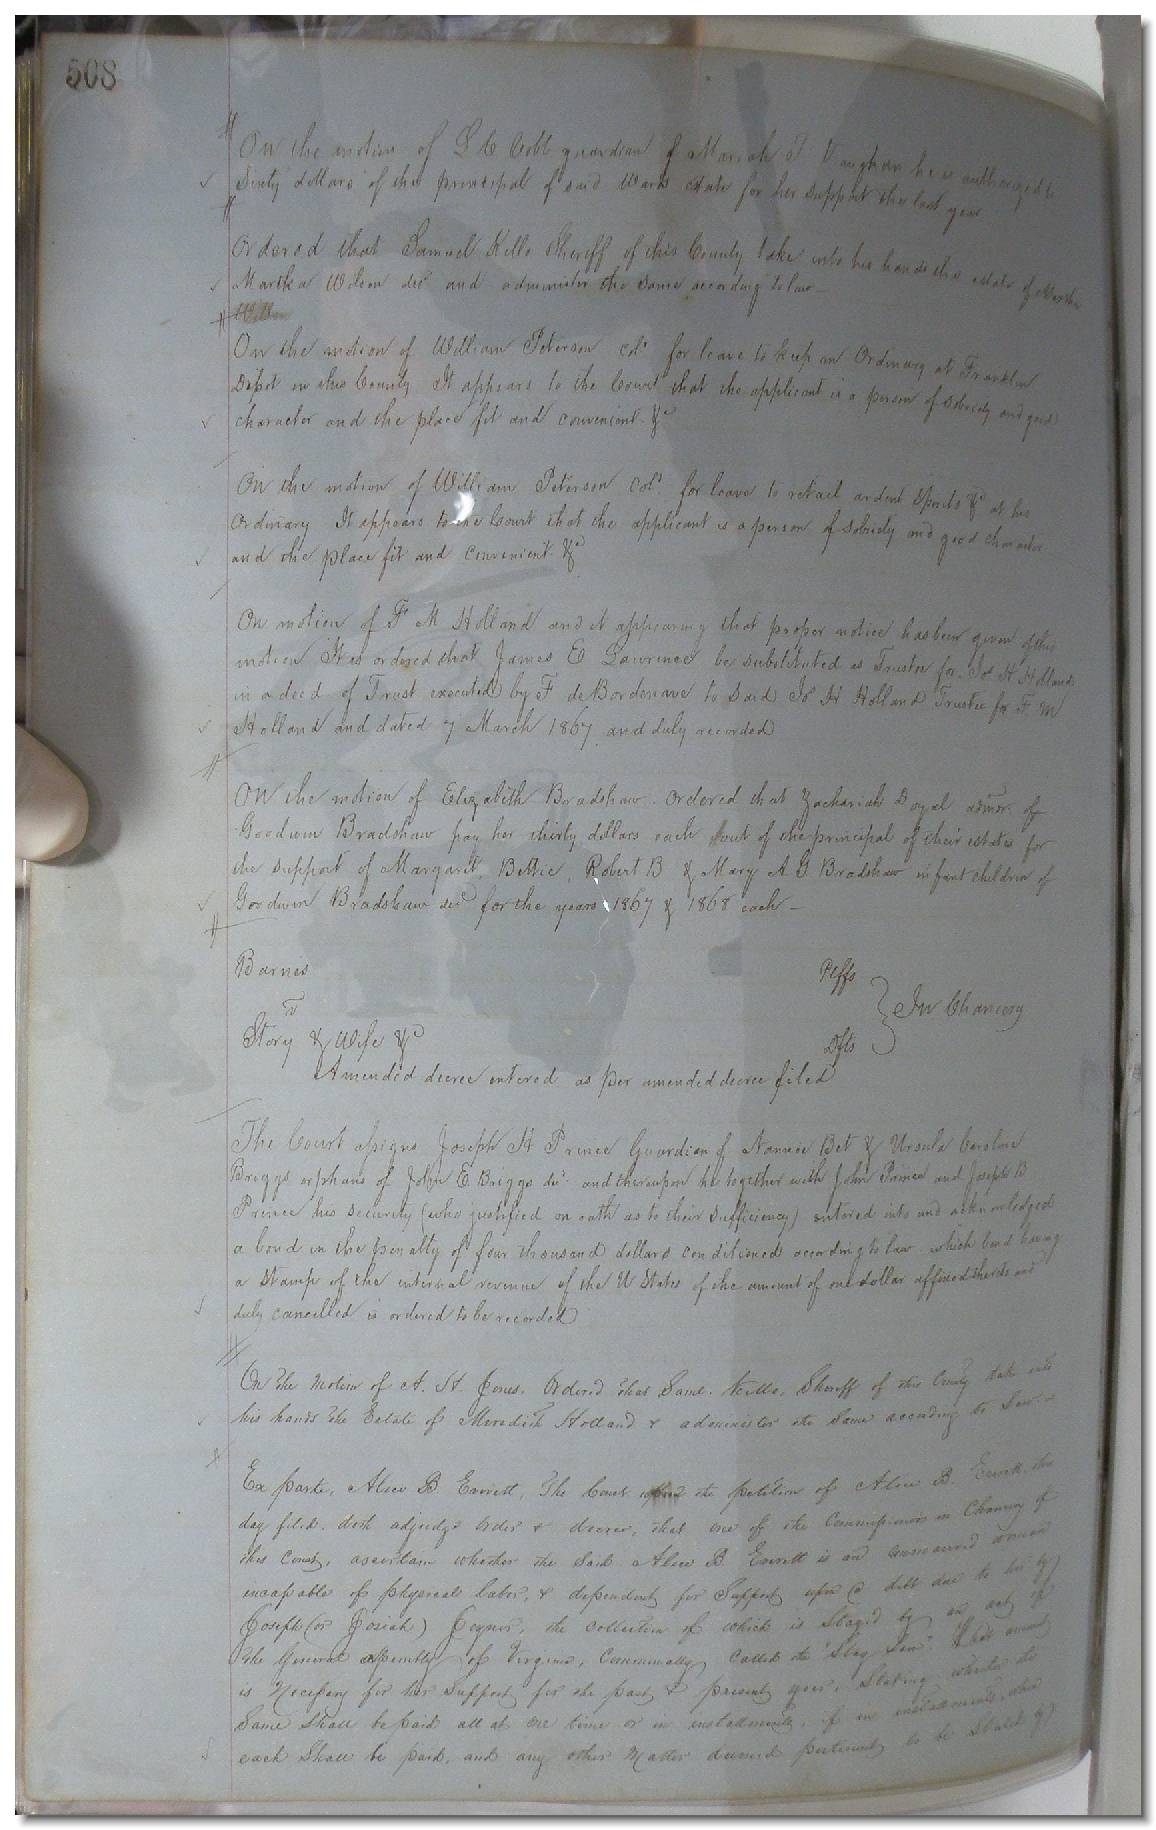 508
On the motion of L C Cobb guardian of Mariah T Vaughan he is authorized to
Sixty dollars of the principal of said Wards estate for her support the last year
Ordered that Samuel Kello Sheriff of this County take into his hands the estate of Martha
Martha Wilson decd and administer the same according to law
On the motion of William Peterson cold for leave to keep an Ordinary at Franklin
Depot in this County It appears to the Court that the applicant is a person of sobriety and good
character and the place fit and convenient &c
On the motion of William Peterson cold for leave to retail ardent Spirits &c at his
Ordinary It appears to the Court that the applicant is a person of sobriety and good character
and the place fit and convenient &c
On motion of F M Holland and it appearing that proper notice has been given of this
motion It is ordered that James E Lawrence be substituted as Trustee for Jos H Holland
in a deed of Trust executed by F deBordenave to said Jos H Holland Trustee for F. M
Holland and dated 7 March 1867 and duly recorded
On the motion of Elizabeth Bradshaw ordered that Zachariah Doyal admor. of
Goodwin Bradshaw pay her thirty dollars each out of the principal of their estates for
the support of Margaret, Bettie, Robert B & Mary A G Bradshaw infant children of
Goodwin Bradshaw decd for the years 1867 & 1868 each
Barnes Plffs
v In Chancery
Story & Wife &c Dfts
Amended decree entered as per amended decree filed
The Court assigns Joseph H Prince Guardian of Nannie Bet & Ursula Caroline
Briggs orphans of John E Briggs decd and thereupon he together with John Prince and Joseph B
Prince his security (who justified on oath as to their sufficiency) entered into and acknowledged
a bond in the penalty of four thousand dollars conditioned according to law which bond having
a Stamp of the internal revenue of the U States of the amount of one dollar affixed thereto and
duly cancelled is ordered to be recorded
On the Motion of A. H. Jones, Ordered that Saml. Kello, Sheriff of this County take into
his hands the Estate of Meredith Holland & administer the same according to Law
Ex parte, Alice B. Everett, The Court upon the petition of Alice B. Everett, this
day filed, doth adjudge order & decree, that one of the Commissioners in Chancery of
this Court, ascertain whether the said Alice B. Everett is an unmarried woman
incapable of physical labor, & dependent for Support upon a debt due to her by
Joseph (or Josiah) Joyner, the collection of which is Stayed by an act of
the General assembly of Virginia, Commonly called the "Stay Law". What amount
is necessary for her Support for the past & present year, Stating whether the
Same shall be paid all at one time or in installments, if in installments, when
each Shall be paid, and any other Matter deemed pertinent, to be Stated by